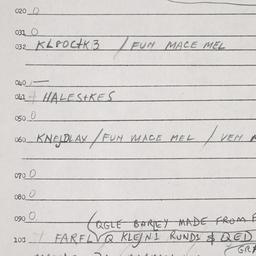 020 0
031 0
032 KLPOCTK3 / FUM MACE MEL
040 —
041 HALESTKES
050 0
060 KNEJDLAV / FUM MACE MEL / VEM
070 0
080 0
090 0
(QGLE BARLEY MADE FROM F
103 FARFL Q KLEJNI RUNDS & QED
(GRA